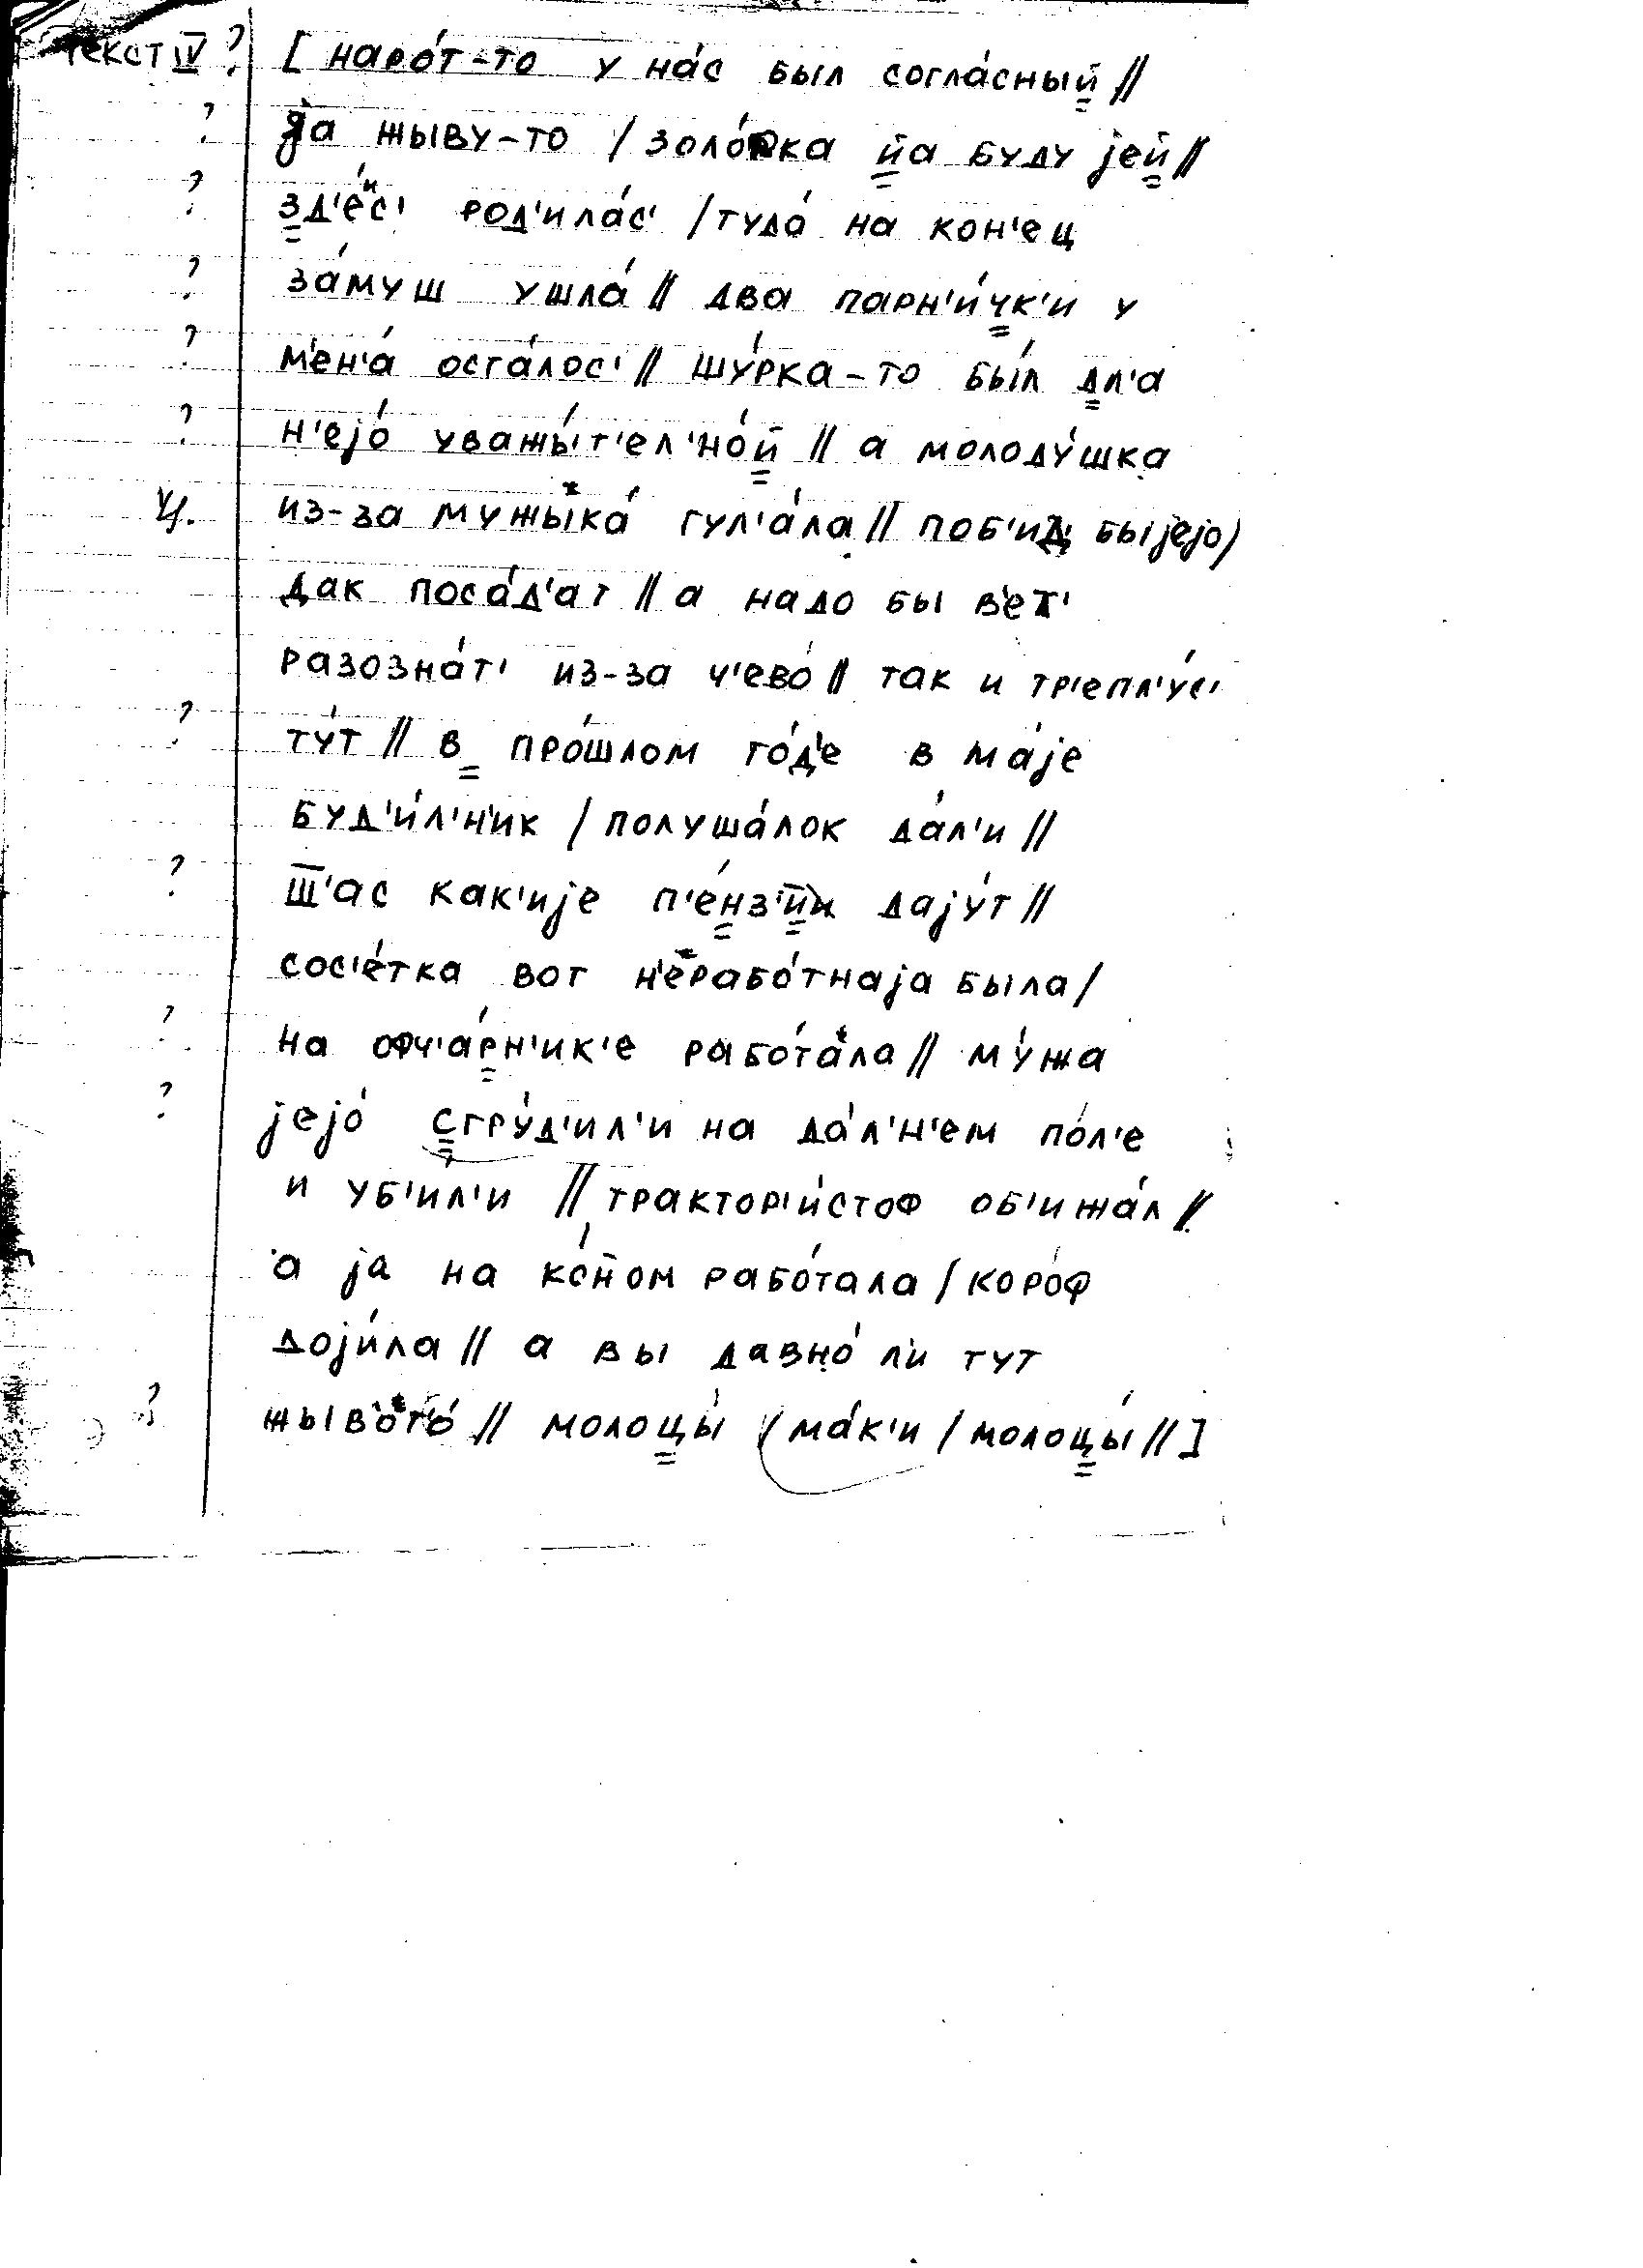 текст IV ? [ наро́т-то у на́с был согла́сный //
? jа жыву-то / золо́fка йа буду jей //
? зд'е́с' род'ила́с' / туда́ на кон'ец
? за́муш ушла́ // два парн'и́чк'и у
? м'ен'а́ оста́лос' // шу́рка-то бы́л дл'а
? н'еjо́ уважы́т'ел'но́й // а молоду́шка
Ц. из-за мужыка́ гул'а́ла // поб'иц быjеjо)
дак поса́д'ат // а надо бы в'ет'
разозна́т' из-за ч'ево́ // так и тр'епл'у́с'
? ту́т // в про́шлом го́д'е в ма́jе
буд'и́л'н'ик / полуша́лок да́л'и //
? ш̅'ас как'иjе п'е́нз'ийи даjу́т //
сос'е́тка вот н'ерабо́тнаjа была /
? на офч'а́рн'ик'е рабо́тала // му́жа
? jеjо́ сгру́д'ил'и на да́л'н'ем по́л'е
и уб'ил'и // трактор'и́стоф об'ижа́л //
а jа на ко́н̅ом рабо́тала / коро́ф
доjи́ла // а вы давно́ л'и тут
? жывот'о́ // молоцы́ / ма́к'и / молоцы́ // ]